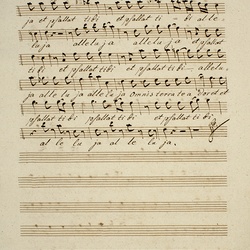 ja et psallat tibi et psallat ti bi al le
luja alleluja alleluja et psallat
tibi et psallat tibi et psallat tibi allelu
ja alleluja alleluja omnis terra te a doret et
psallat ti bi psallat ti bi et psallat tibi
al le lu ja al le lu ja.